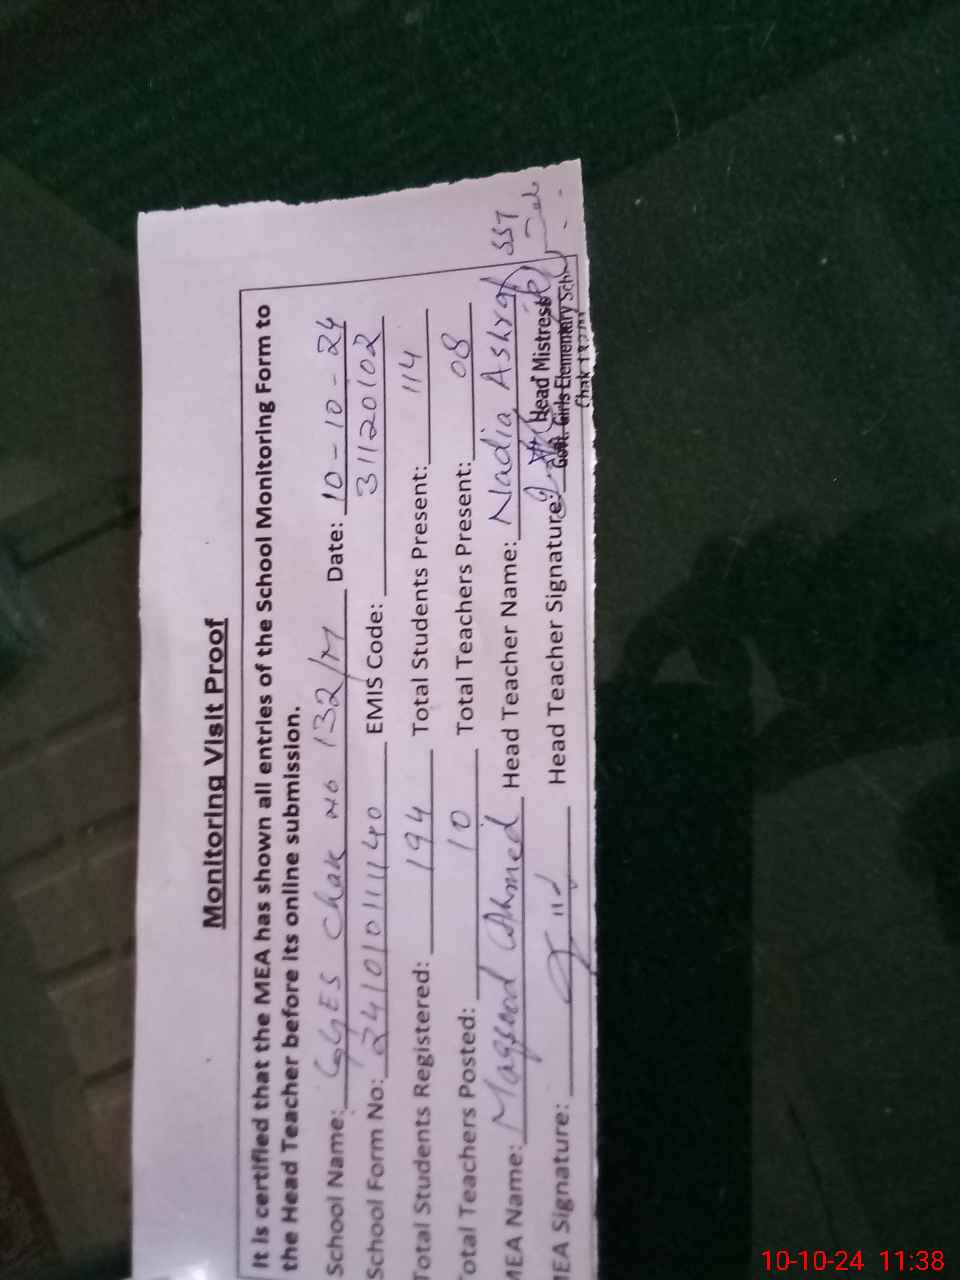 Monitoring Visit Proof
It is certified that the MEA has shown all entries of the School Monitoring Form to
the Head Teacher before its online submission.
School Name: GGES Chak No 132/M Date: 10-10-24
School Form No: 24101011140 EMIS Code: 31120102
Total Students Registered: 194 Total Students Present: 114
Total Teachers Posted: 10 Total Teachers Present: 08
MEA Name: Maqsood Ahmed Head Teacher Name: Nadia Ashraf SST
MEA Signature: Head Teacher Signature:
Head Mistress
Govt. Girls Elementary Sch
Chak
10-10-24 11:38